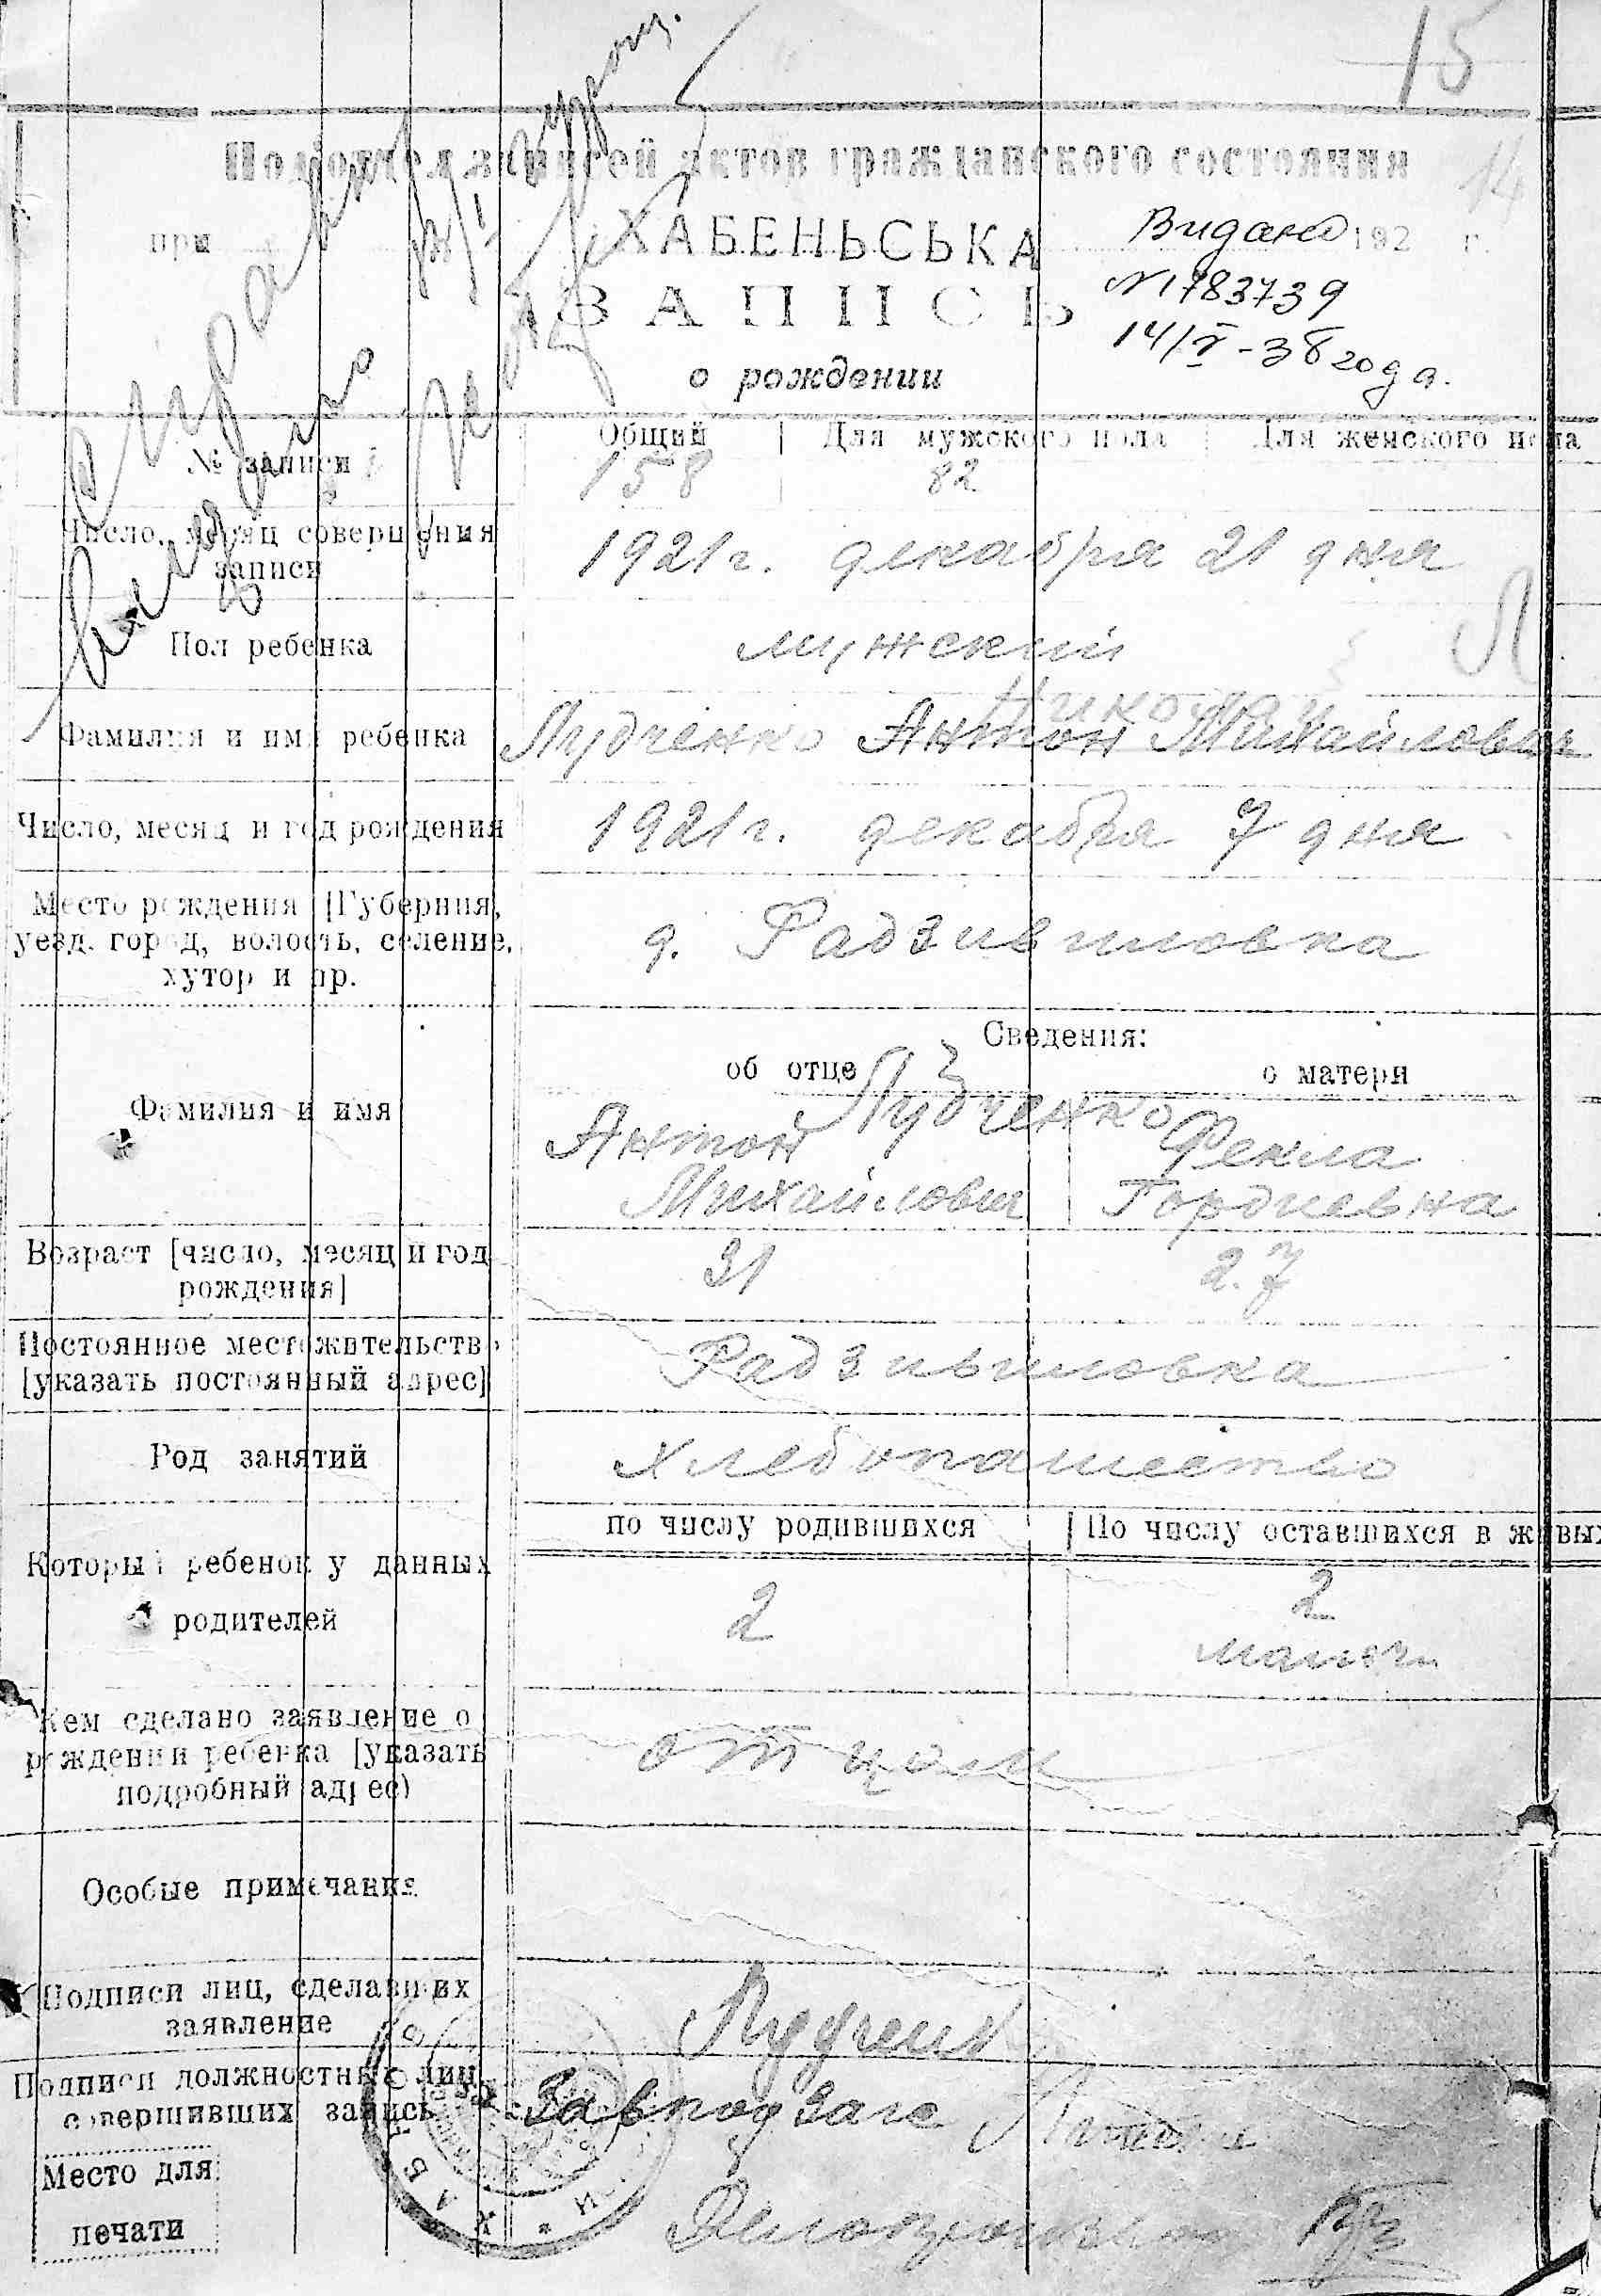 15
Подотдел записей актов гражданского состояния
14
при ХАБЕНЬСЬКА Видано 192 г.
ЗАПИСЬ
N 1783739
14/V-38 года.
о рождении
Общий Для мужского пола Для женского пола
№ записи 158 82
Число, месяц совершения
записи
1921 г. декабря 21 дня
Пол ребенка мужский
Л
Николай
Фамилия и имя ребенка Лудченко Антон Михайлович
Число, месяц и год рождения 1921 г. декабря 7 дня
Место рождения [Губерния,
уезд, город, волость, селение,
хутор и пр.
д. Радзивиловка
Сведения:
об отце о матери
Фамилия и имя
Лудченко
Антон Фекла
Михайлович Гордиевна
Возраст [число, месяц и год
рождения]
31 27
Постоянное местожительство
[указать постоянный адрес]
Радзивиловка
Род занятий хлебопашество
по числу родившихся По числу оставшихся в живых
Который ребенок у данных
родителей
2 2
Кем сделано заявление о
рождении ребенка [указать
подробный адрес)
отцом
Особые примечания
Подписи лиц, сделавших
заявление
Подписи должностных лиц,
совершивших запись
Завподзагс
Место для
печати
Делопроизвод